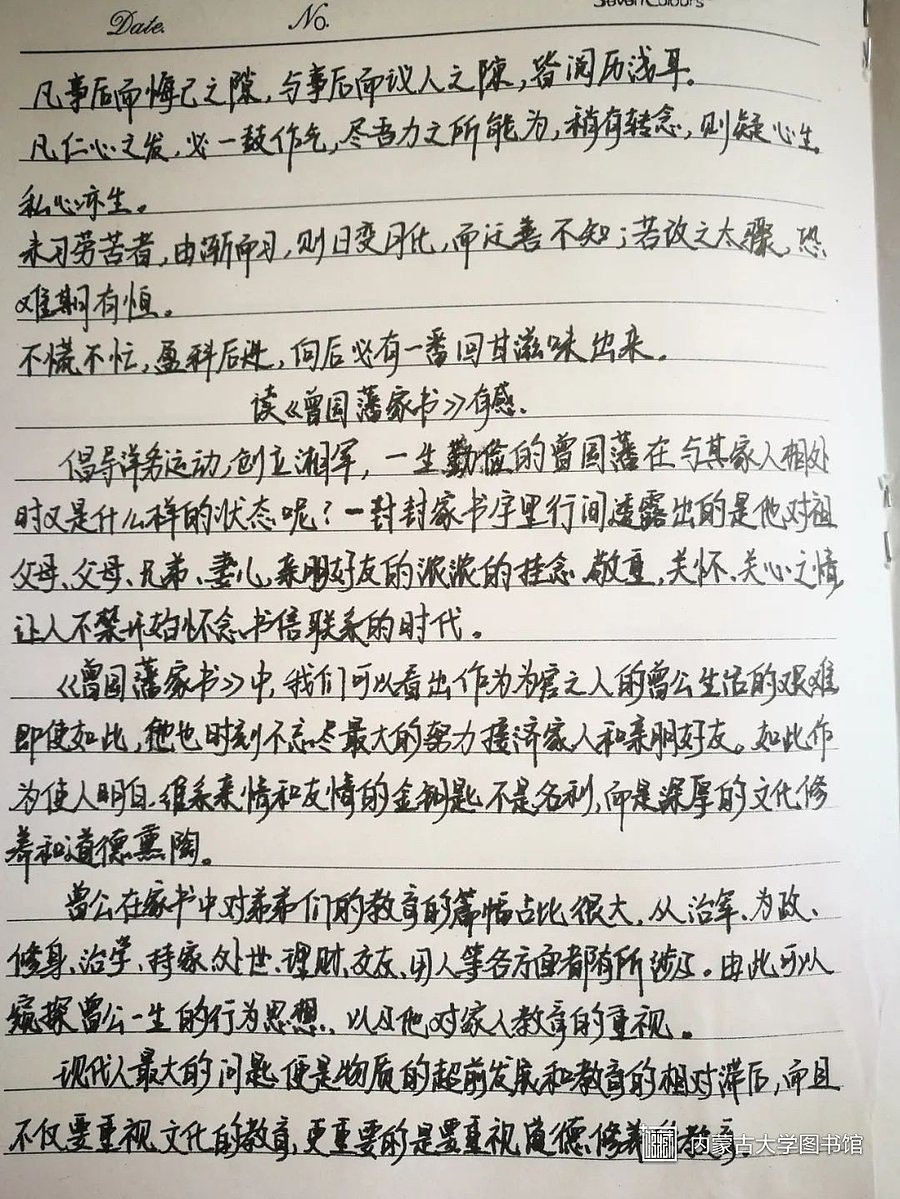 Date.
No.
SevenColours
凡事后而悔己之隙，与事后而议人之隙，皆阅历浅耳。
凡仁心之发，必一鼓作气，尽吾力之所能为，稍有转念，则疑心生，
私心亦生。
未习劳苦者，由渐而习，则日变月化，而迁善不知；若改之太骤，恐
难期有恒。
不慌不忙，盈科后进，向后必有一番回甘滋味出来。
读《曾国藩家书》有感.
倡导洋务运动，创立湘军，一生勤俭的曾国藩在与其家人相处
时又是什么样的状态呢？一封封家书字里行间透露出的是他对祖
父母、父母、兄弟、妻儿、亲朋好友的浓浓的挂念、敬重，关怀、关心之情，
让人不禁开始怀念书信联系的时代。
《曾国藩家书》中，我们可以看出作为为官之人的曾公生活的艰难，
即使如此，他也时刻不忘尽最大的努力接济家人和亲朋好友。如此作
为使人明白，维系亲情和友情的金钥匙不是名利，而是深厚的文化修
养和道德熏陶。
曾公在家书中对弟弟们的教育的篇幅占比很大，从治军、为政、
修身、治学、持家、处世、理财、交友、用人等各方面都有所涉及。由此可以
窥探曾公一生的行为思想，以及他对家人教育的重视。
现代人最大的问题，便是物质的超前发展和教育的相对滞后，而且
不仅要重视文化的教育，更重要的是要重视道德修养的教育.
内蒙古大学图书馆